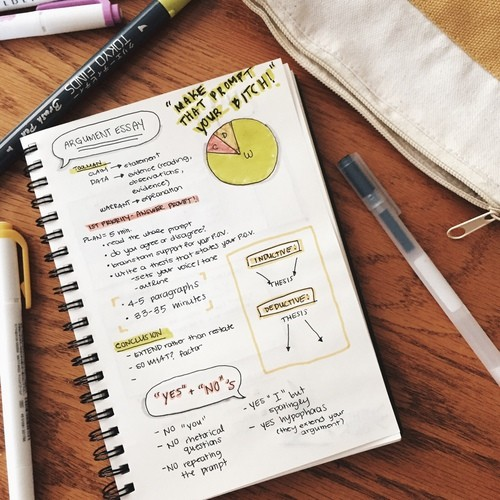 TOKYO FINDS
Brush Pen
"MAKE
THAT PROMPT
YOUR BITCH!"
ARGUMENT ESSAY
D
C
W
TOULMIN
CLAIM → statement
DATA → evidence (reading,
observations,
evidence)
WARRANT → explanation
1ST PRIORITY - ANSWER PROMPT!
PLAN = 5 min.
• read the whole prompt
• do you agree or disagree?
• brainstorm support for your P.O.V.
• Write a thesis that states your P.O.V.
- sets your voice/tone
- outline
• 4-5 paragraphs
• 33-35 minutes
INDUCTIVE:
THESIS
DEDUCTIVE:
THESIS
CONCLUSION
- EXTEND rather than restate
- SO WHAT? factor
-
"YES" + "NO"'S
- NO "you"
- NO rhetorical
questions
- NO repeating
the prompt
- YES "I" but
sparingly
- yes hypophoras
(they extend your
argument)